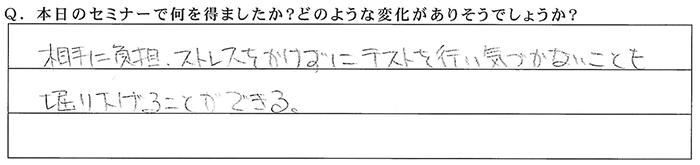 Q. 本日のセミナーで何を得ましたか?どのような変化がありそうでしょうか?
相手に負担、ストレスをかけずにテストを行い気づかないことも
堀り下げることができる。